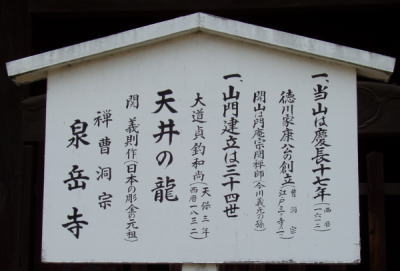 一、当山は慶長十七年(西暦一六一二)
徳川家康公の創立(曹洞宗江戸三ヶ寺の一)
開山は門庵宗関禅師(今川義元の孫)
一、山門建立は三十四世
大道貞鈞和尚(天保三年西暦一八三二)
天井の龍
関義則作(日本の彫金の元祖)
禅曹洞宗
泉岳寺